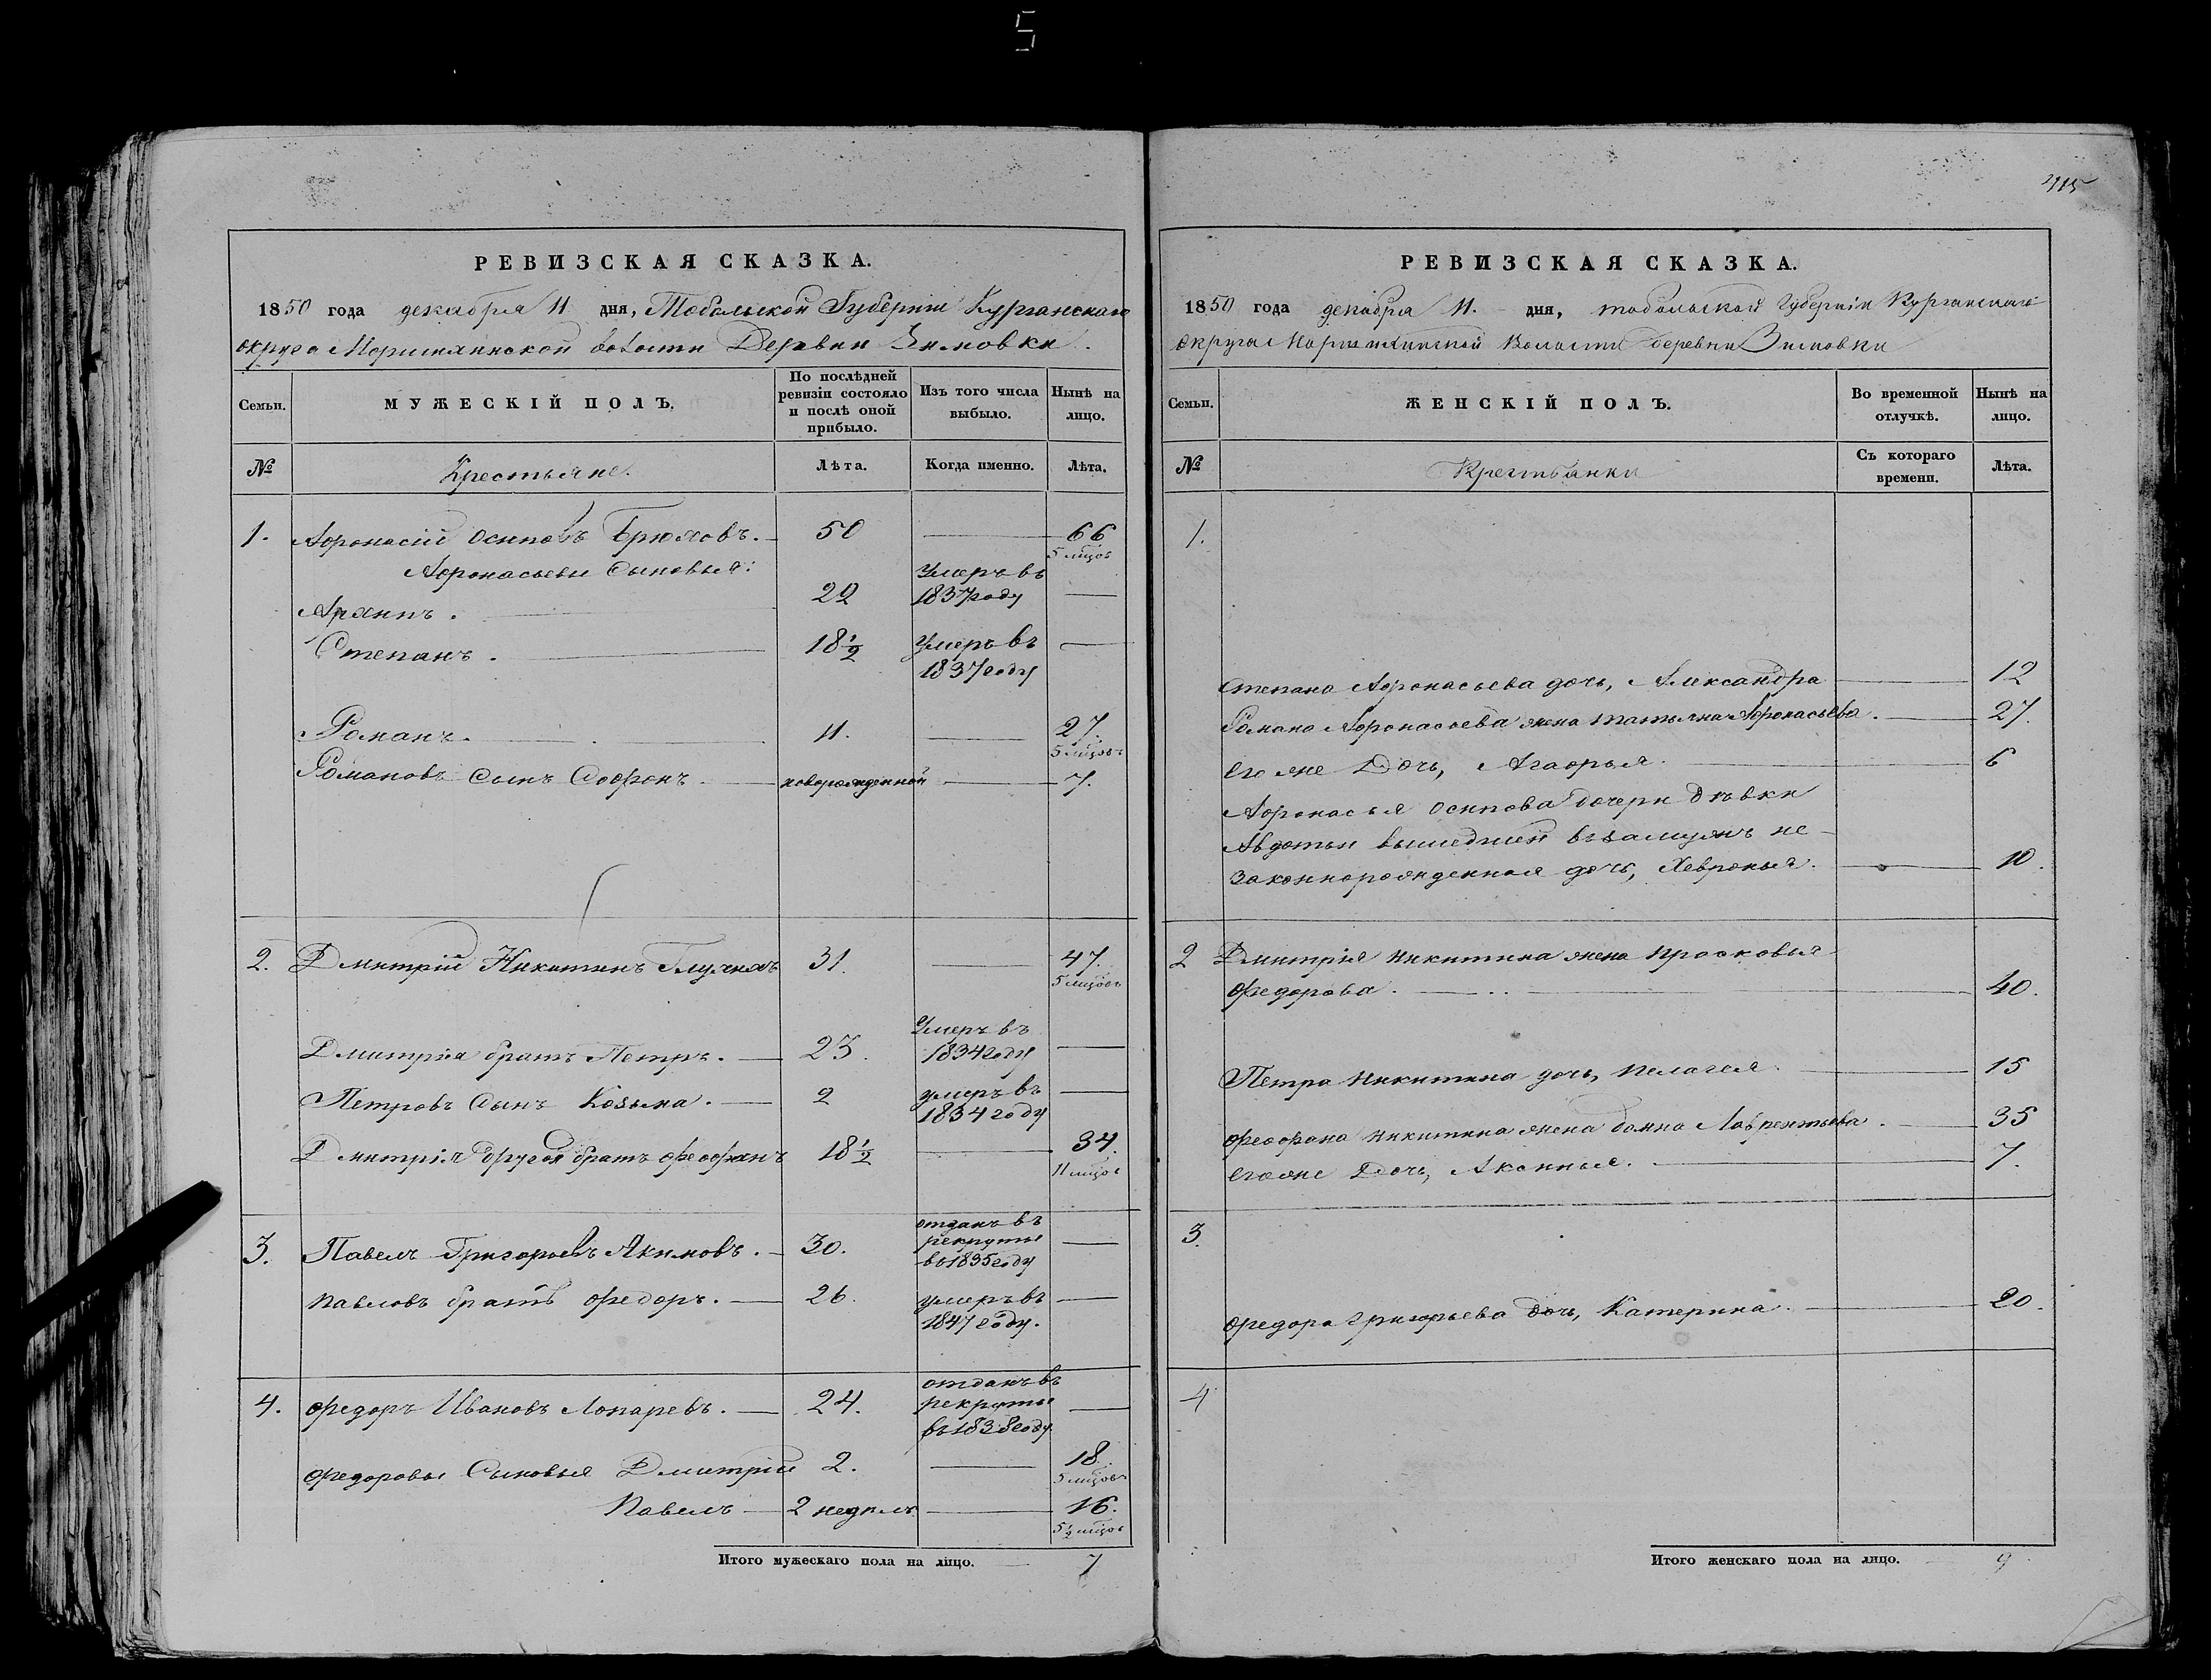 5
РЕВИЗСКАЯ СКАЗКА.
1850 года декабря 11 дня, Тобольской Губернии Курганскаго
округа волости Деревни Зимовки.
Семьи.
МУЖЕСКІЙ ПОЛЪ.
По послѣдней
ревизіи состояло
и послѣ оной
прибыло.
Изъ того числа
выбыло.
Нынѣ на
лицо.
№
Крестьяне.
Лѣта.
Когда именно.
Лѣта.
1. Афонасій Осиповъ Брюховъ. 50 66
5 мѣцов
Афонасьевы Сыновья:
Архипъ. 22 Умеръ въ
1837 году
Степанъ. 18½ Умеръ въ
1837 году
Романъ. 11. 27.
5 мѣцовъ
Романовъ Сынъ Софронъ новорожденной 7.
2. Дмитрій Никитинъ 31. 47.
5 мѣцовъ
Дмитрія братъ Петръ. 23. Умеръ въ
1834 году
Петровъ Сынъ Козьма. 2 умеръ въ
1834 году
Дмитрія другой братъ Феофанъ 18½ 34.
11 мѣцов
3. Павелъ Григорьевъ Акимовъ. 30. отданъ въ
рекруты
въ 1835 году
Павловъ братъ Федоръ. 26. умеръ въ
1847 году.
4. Федоръ Ивановъ Лопаревъ. 24. отданъ въ
рекруты
въ 1838 году
Федоровы Сыновья Дмитрій 2. 18.
5 мѣцовъ
Павелъ 2 недѣль 16.
5½ мѣцов
Итого мужескаго пола на лицо. 7
РЕВИЗСКАЯ СКАЗКА.
1850 года декабря 11. дня, тобольской Губерніи Курганскаго
Округа Волости деревни Зимовки
Семьи.
ЖЕНСКІЙ ПОЛЪ.
Во временной
отлучкѣ.
Нынѣ на
лицо.
№
Крестьянки
Съ котораго
времени.
Лѣта.
1.
Степана Афонасьева дочь, Александра 12
Романа Афонасьева жена Татьяна Афонасьева. 27.
его же Дочь, Агафья. 6
Афонасья Осипова дочери дѣвки
Авдотьи вышедшей въ замужъ не-
законнорожденная дочь, Хевронья. 10.
2 Дмитрія Никитина жена Просковья
Федорова. 40.
Петра Никитина дочь, Пелагея. 15
Феофана Никитина жена Домна Лаврентьева. 35
его же Дочь, Аксинья. 7.
3.
Федора Григорьева дочь, Катерина. 20.
4
Итого женскаго пола на лицо. 9